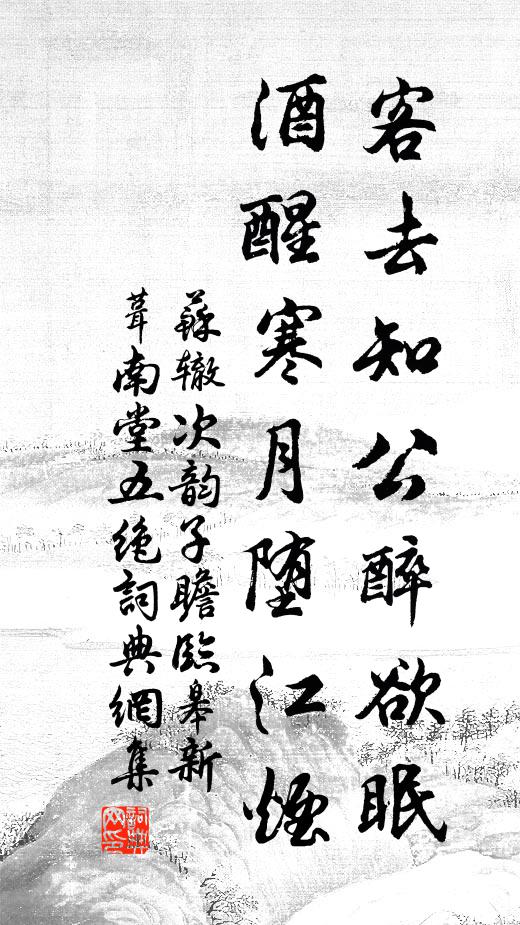 客去知公醉欲眠
酒醒寒月堕江煙
蘇辙次韵子瞻臨皋新
葺南堂五绝詞典網集